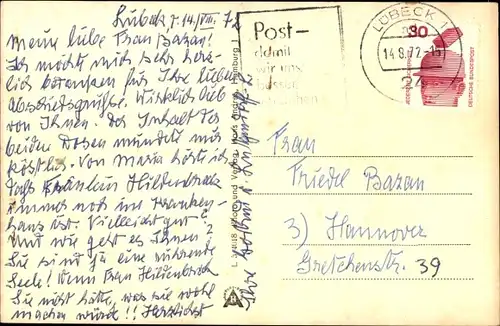 Lübeck, d. 14./VIII. 72
Meine liebe Frau Bazan!
Ich möchte mich sehr herz-
lich bedanken für Ihre lieben
Abschiedsgrüße. Wirklich lieb
von Ihnen. Der Inhalt der
beiden Dosen mundete uns
köstlich. Von Maria hörte ich
daß Fräulein Hildenbrock
immer noch im Kranken-
haus ist. Vielleicht gut?
Und wie geht es Ihnen?
Sie sind ja eine rührende
Seele! Wenn Frau Hildenbrock
Sie nicht hätte, was sie wohl
machen würde!! Herzlichst
Ihre
Post-
damit
wir uns
besser
LÜBECK 1
14.8.72-15
24
30
DEUTSCHE BUNDESPOST
Foto und Verlag Hans Andres, Hamburg
Frau
Friedel Bazan
3) Hannover
Gretchenstr. 39